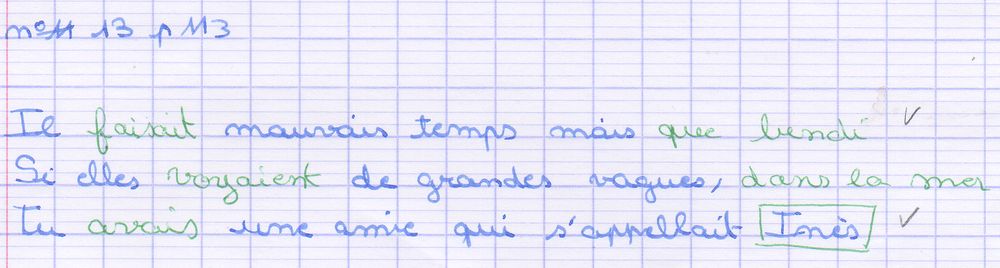 n° 13 p 113
Il faisait mauvais temps mais que lundi
Si elles voyaient de grandes vagues, dans la mer
Tu avais une amie qui s'appellait Inès